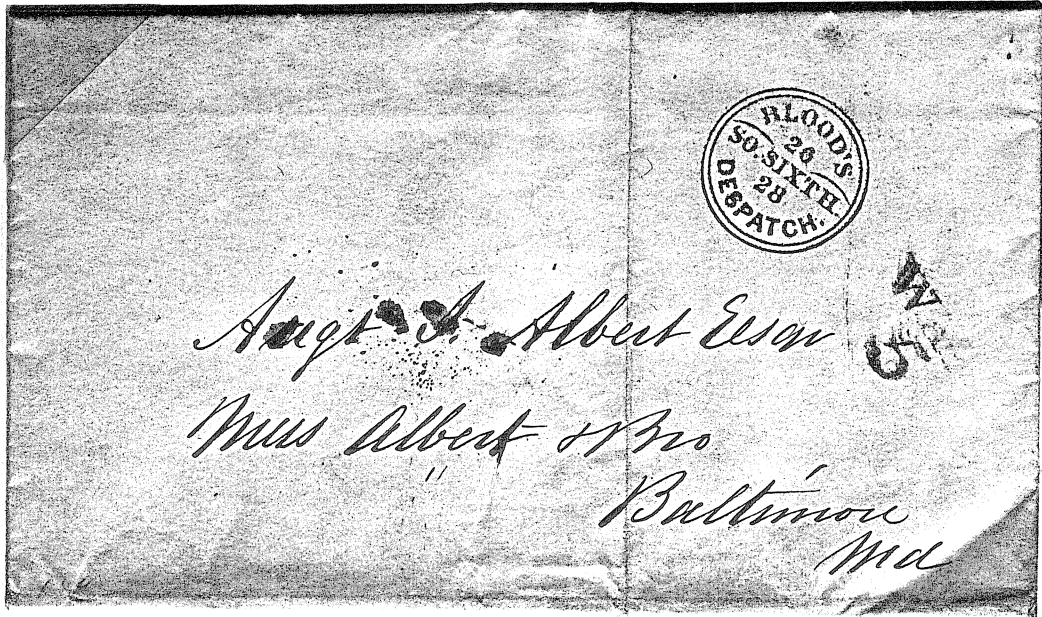 BLOOD'S
26
SO. SIXTH.
28
DESPATCH.
W
5
Augt A. Albert Esqr
Mess Albert & Bro
"
Baltimore
Md